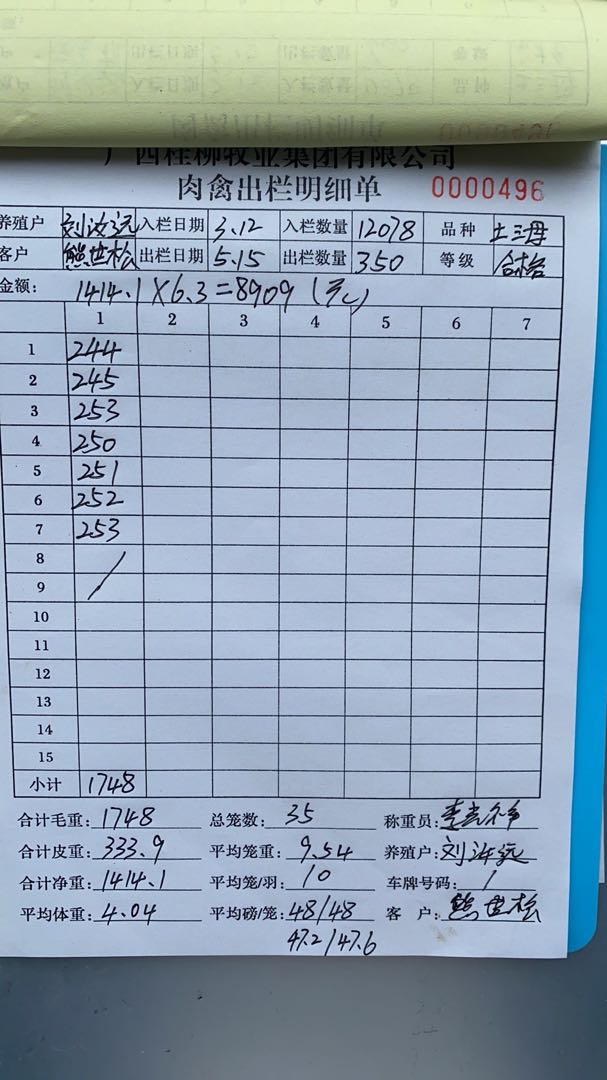 广西桂柳牧业集团有限公司
肉禽出栏明细单 0000496
养殖户 刘汝远 入栏日期 3.12 入栏数量 12078 品种 土三母
客户 熊世松 出栏日期 5.15 出栏数量 350 等级 合格
金额： 1414.1×6.3=8909(元)
1 2 3 4 5 6 7
1 244
2 245
3 253
4 250
5 251
6 252
7 253
8
9
10
11
12
13
14
15
小计 1748
合计毛重：1748 总笼数：35 称重员：
合计皮重：333.9 平均笼重：9.54 养殖户：刘汝远
合计净重：1414.1 平均笼/羽：10 车牌号码：/
平均体重：4.04 平均磅/笼：48/48 客 户：熊世松
47.2/47.6